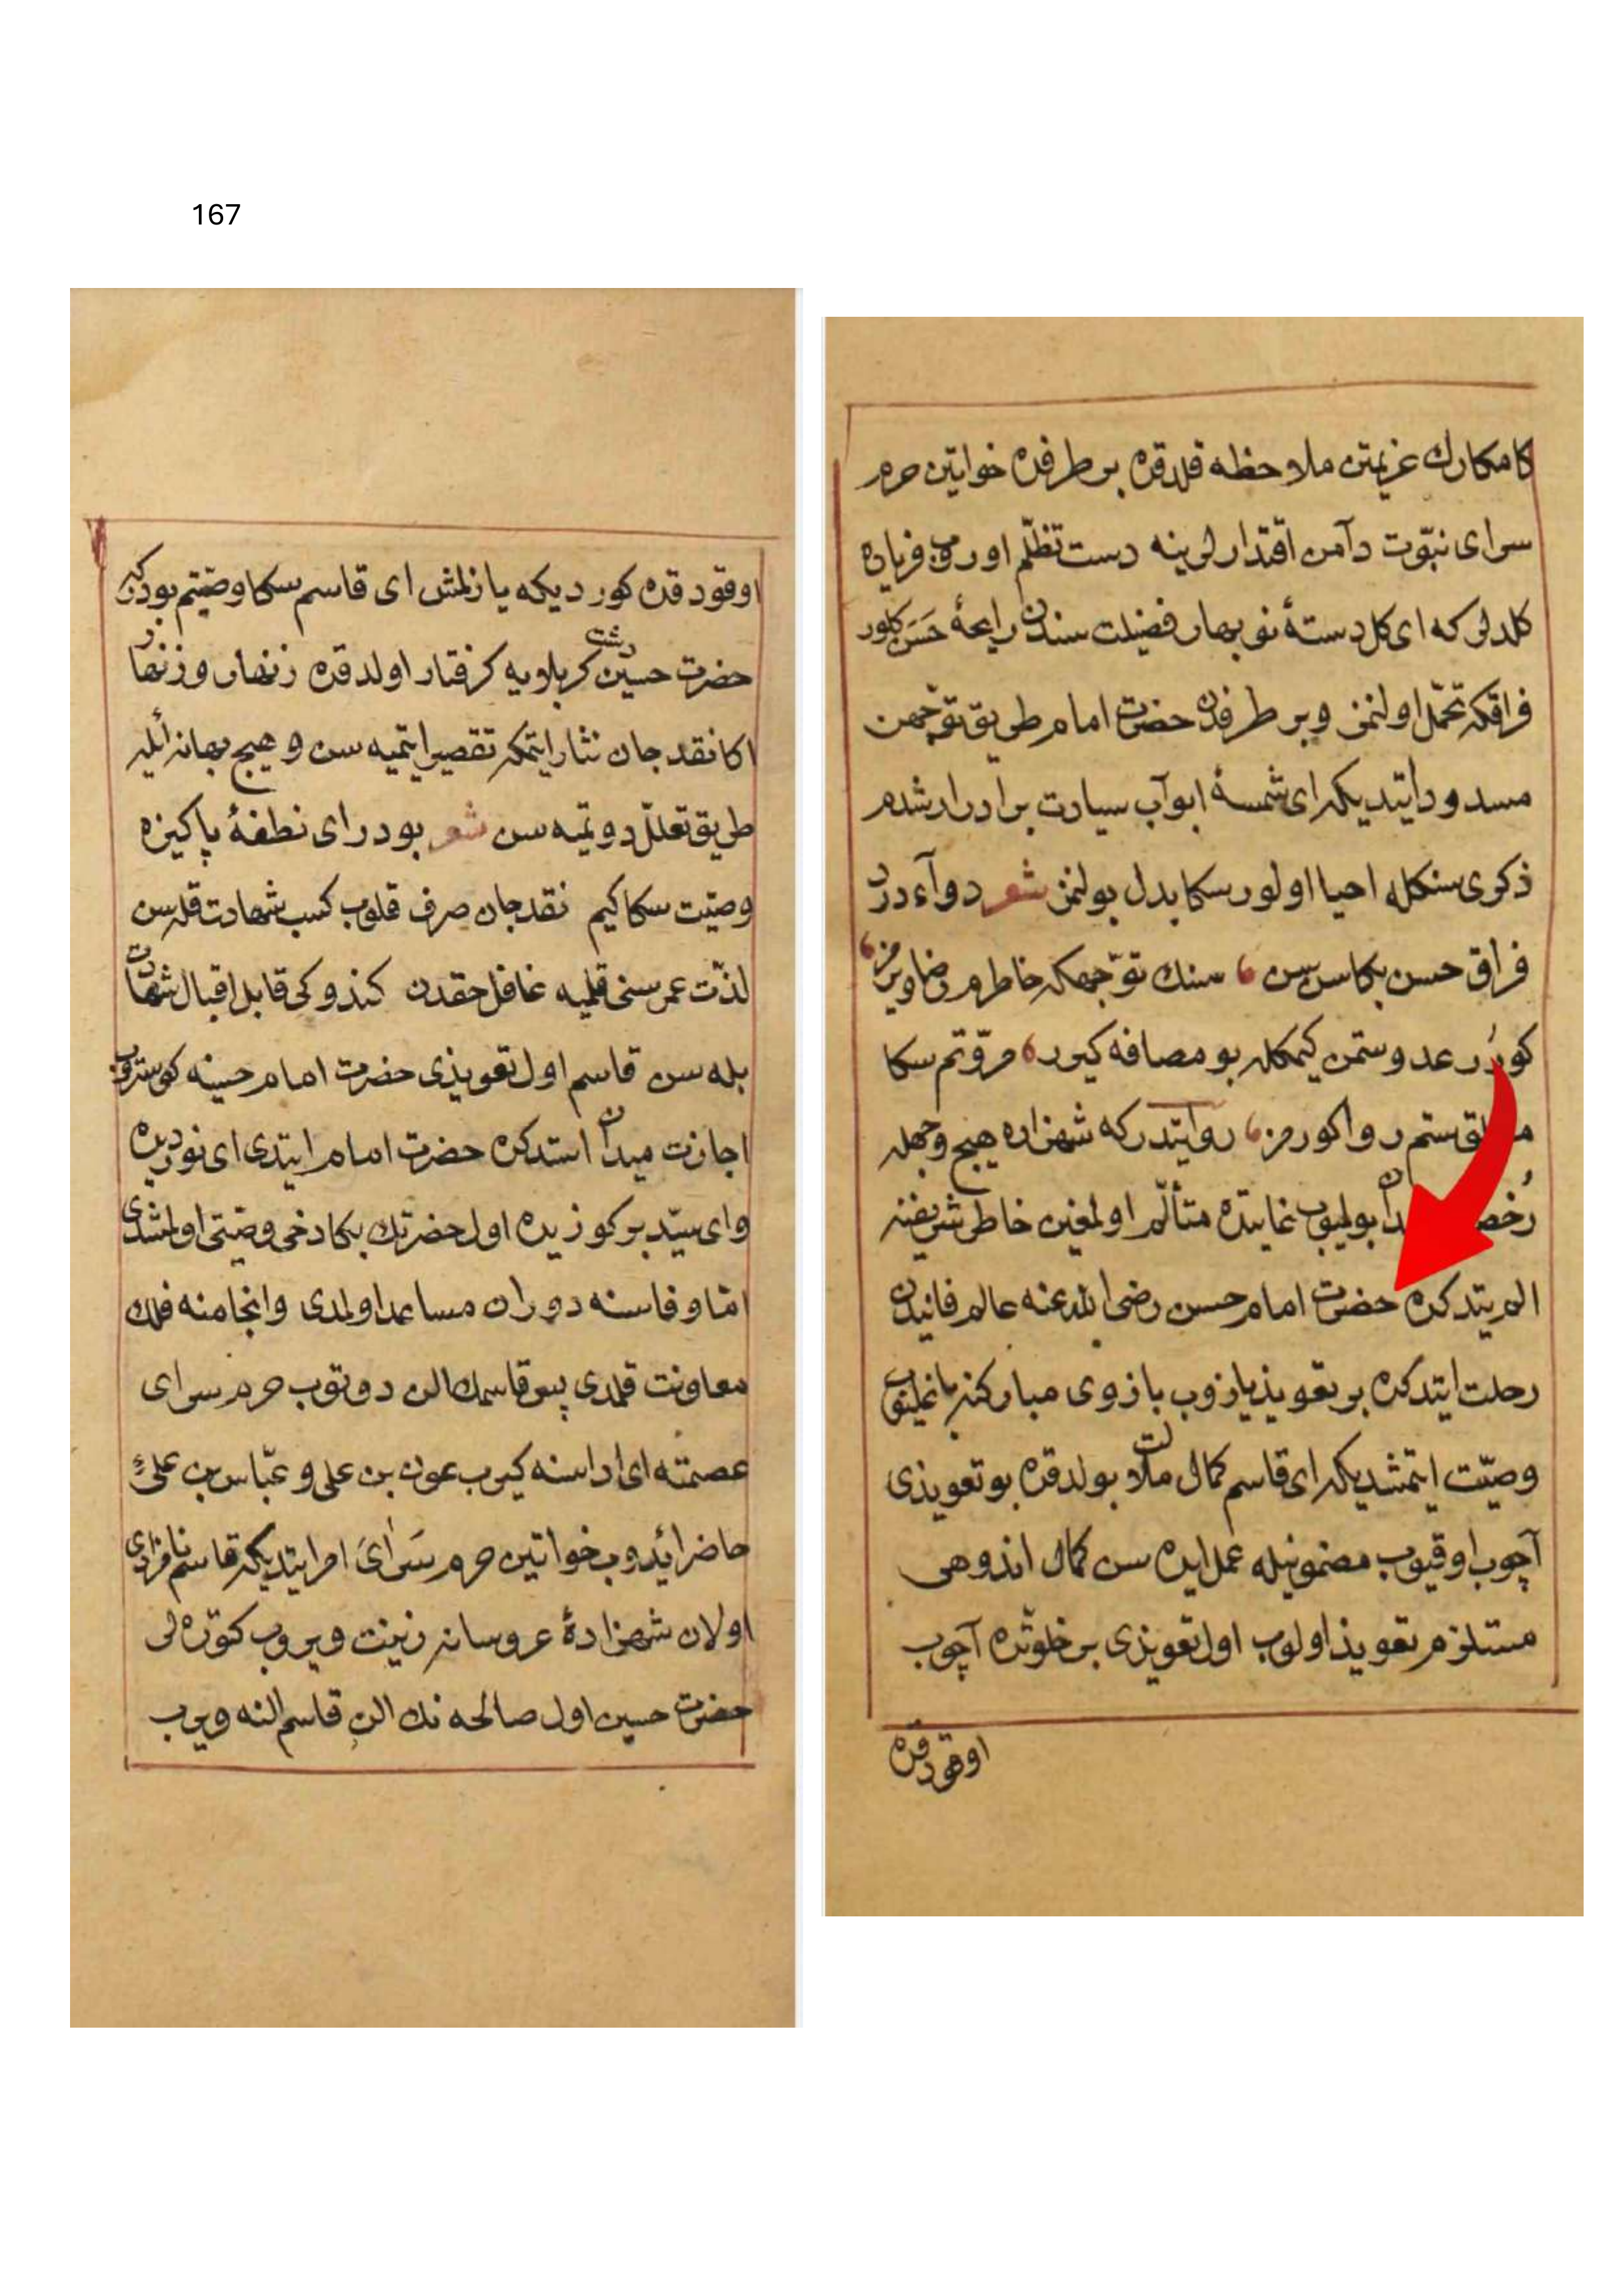 167
كامكارك عزيمتن ملاحظه قلدقره بر طرفدن خواتين حرم
سراى نبوّت دآمن اقتدارلرينه دست تظلّم اوروب فرياده
كلدلر كه اى كل دستهٔ نو بهار فضيلت سندن رايحهٔ حسن كلور
فراقكه تحمّل اولنمز وبر طرفدن حضرت امام طريق توجّهن
مسدود ايتديكه اى شمسهٔ ابوآب سيادت برادرارشدم
ذكرى سنكله احيا اولور سكا بدل بولنمز شعر دوآء درد
فراق حسن بكا سن سن ، سنك توجّهكه خاطرم رضا ويرمز ،
كورر عدو ستمن كيمكله بو مصافه كيرر ، مروّتم سكا
ستم روا كورمز ، روايتدر كه شهزاده هيچ وجهله
بوليوب غايتده متألّم اولمغين خاطر شريفنه
الم يتدكره حضرت امام حسن رضى الله عنه عالم فانيدن
رحلت ايتدكره بر تعويذ يازوب بازوى مباركنه باغليوب
وصيّت ايتمشديكه اى قاسم كمال ملالت بولدقره بو تعويذى
آچوب اوقيوب مضمونيله عمل ايده سن كمال اندوهى
مستلزم تعويذ اولوب اول تعويذى بر خلوتده آچوب
اوقودقره
اوقودقده كوردیكه يازلمش اى قاسم سكا وصيّتم بودركه
حضرت حسين دشت كربلاويه كرفتار اولدقره زنهار و زنهار
اكا نقد جان نثار ايتمكه تقصير ايتميه سن و هيچ بهانه ايله
طريق تعلّل دوتميه سن شعر بودر اى نطفهٔ پاكيزه
وصيّت سكا كيم نقد جان صرف قلوب كسب شهادت قله سن
لذّت عمر سنى قلميه غافل حقدن كندوكى قابل اقبال شهادت
بله سن قاسم اول تعويذى حضرت امام حسينه كوستروب
اجازت ميدان استدكره حضرت امام ايتدى اى نورديده
واى سيّد بركوزيده اول حضرتك بكا دخى وصيّتى اولمشدى
امّا وفاسنه دوران مساعد اولمدى وانجامنه فلك
معاونت قلمدى پس قاسمك الن دوتوب حرم سراى
عصمته اى اراسنه كيرب عون بن على و عبّاس بن على
حاضر ايدوب خواتين حرم سراى امر ايتديكه قاسم نامزادى
اولان شهزادهٔ عروسانه زينت ويروب كتوره لر
حضرت حسين اول صالحه نك الن قاسم النه ويرب